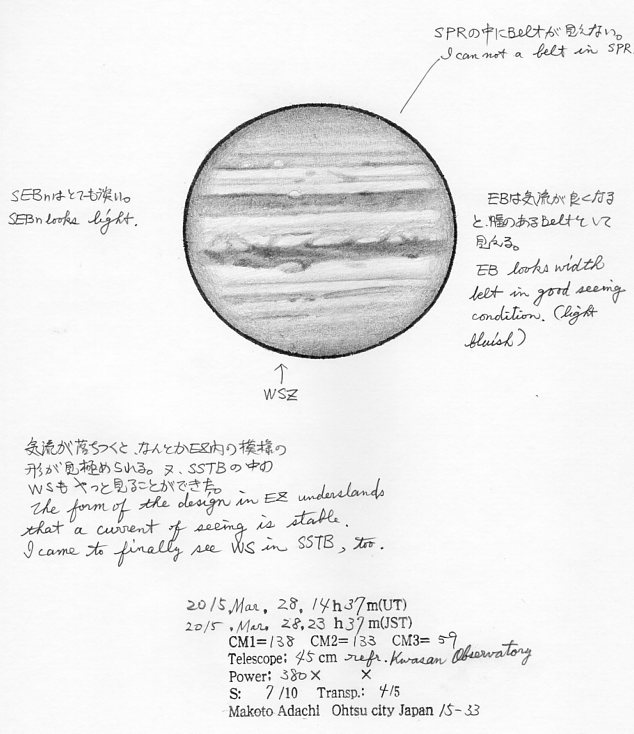 SPRの中にBeltが見えない。
I can not a belt in SPR
SEBnはとても淡い。
SEBn looks light.
EBは気流が良くなる
と、幅のあるBeltとして
見える。
EB looks width
belt in good seeing
condition. (light
bluish)
↑
WSZ
気流が落ちつくと、なんとかEZ内の模様の
形が見極められる。又、SSTBの中の
WSもやっと見ることができた。
The form of the design in EZ understands
that a current of seeing is stable.
I came to finally see WS in SSTB, too.
2015.Mar. 28, 14h37m(UT)
2015.Mar. 28,23 h37m(JST)
CM1=138 CM2=133 CM3=59
Telescope; 45 cm refr. Kwasan Observatory
Power; 380× ×
S: 7/10 Transp.: 4/5
Makoto Adachi Ohtsu city Japan 15-33